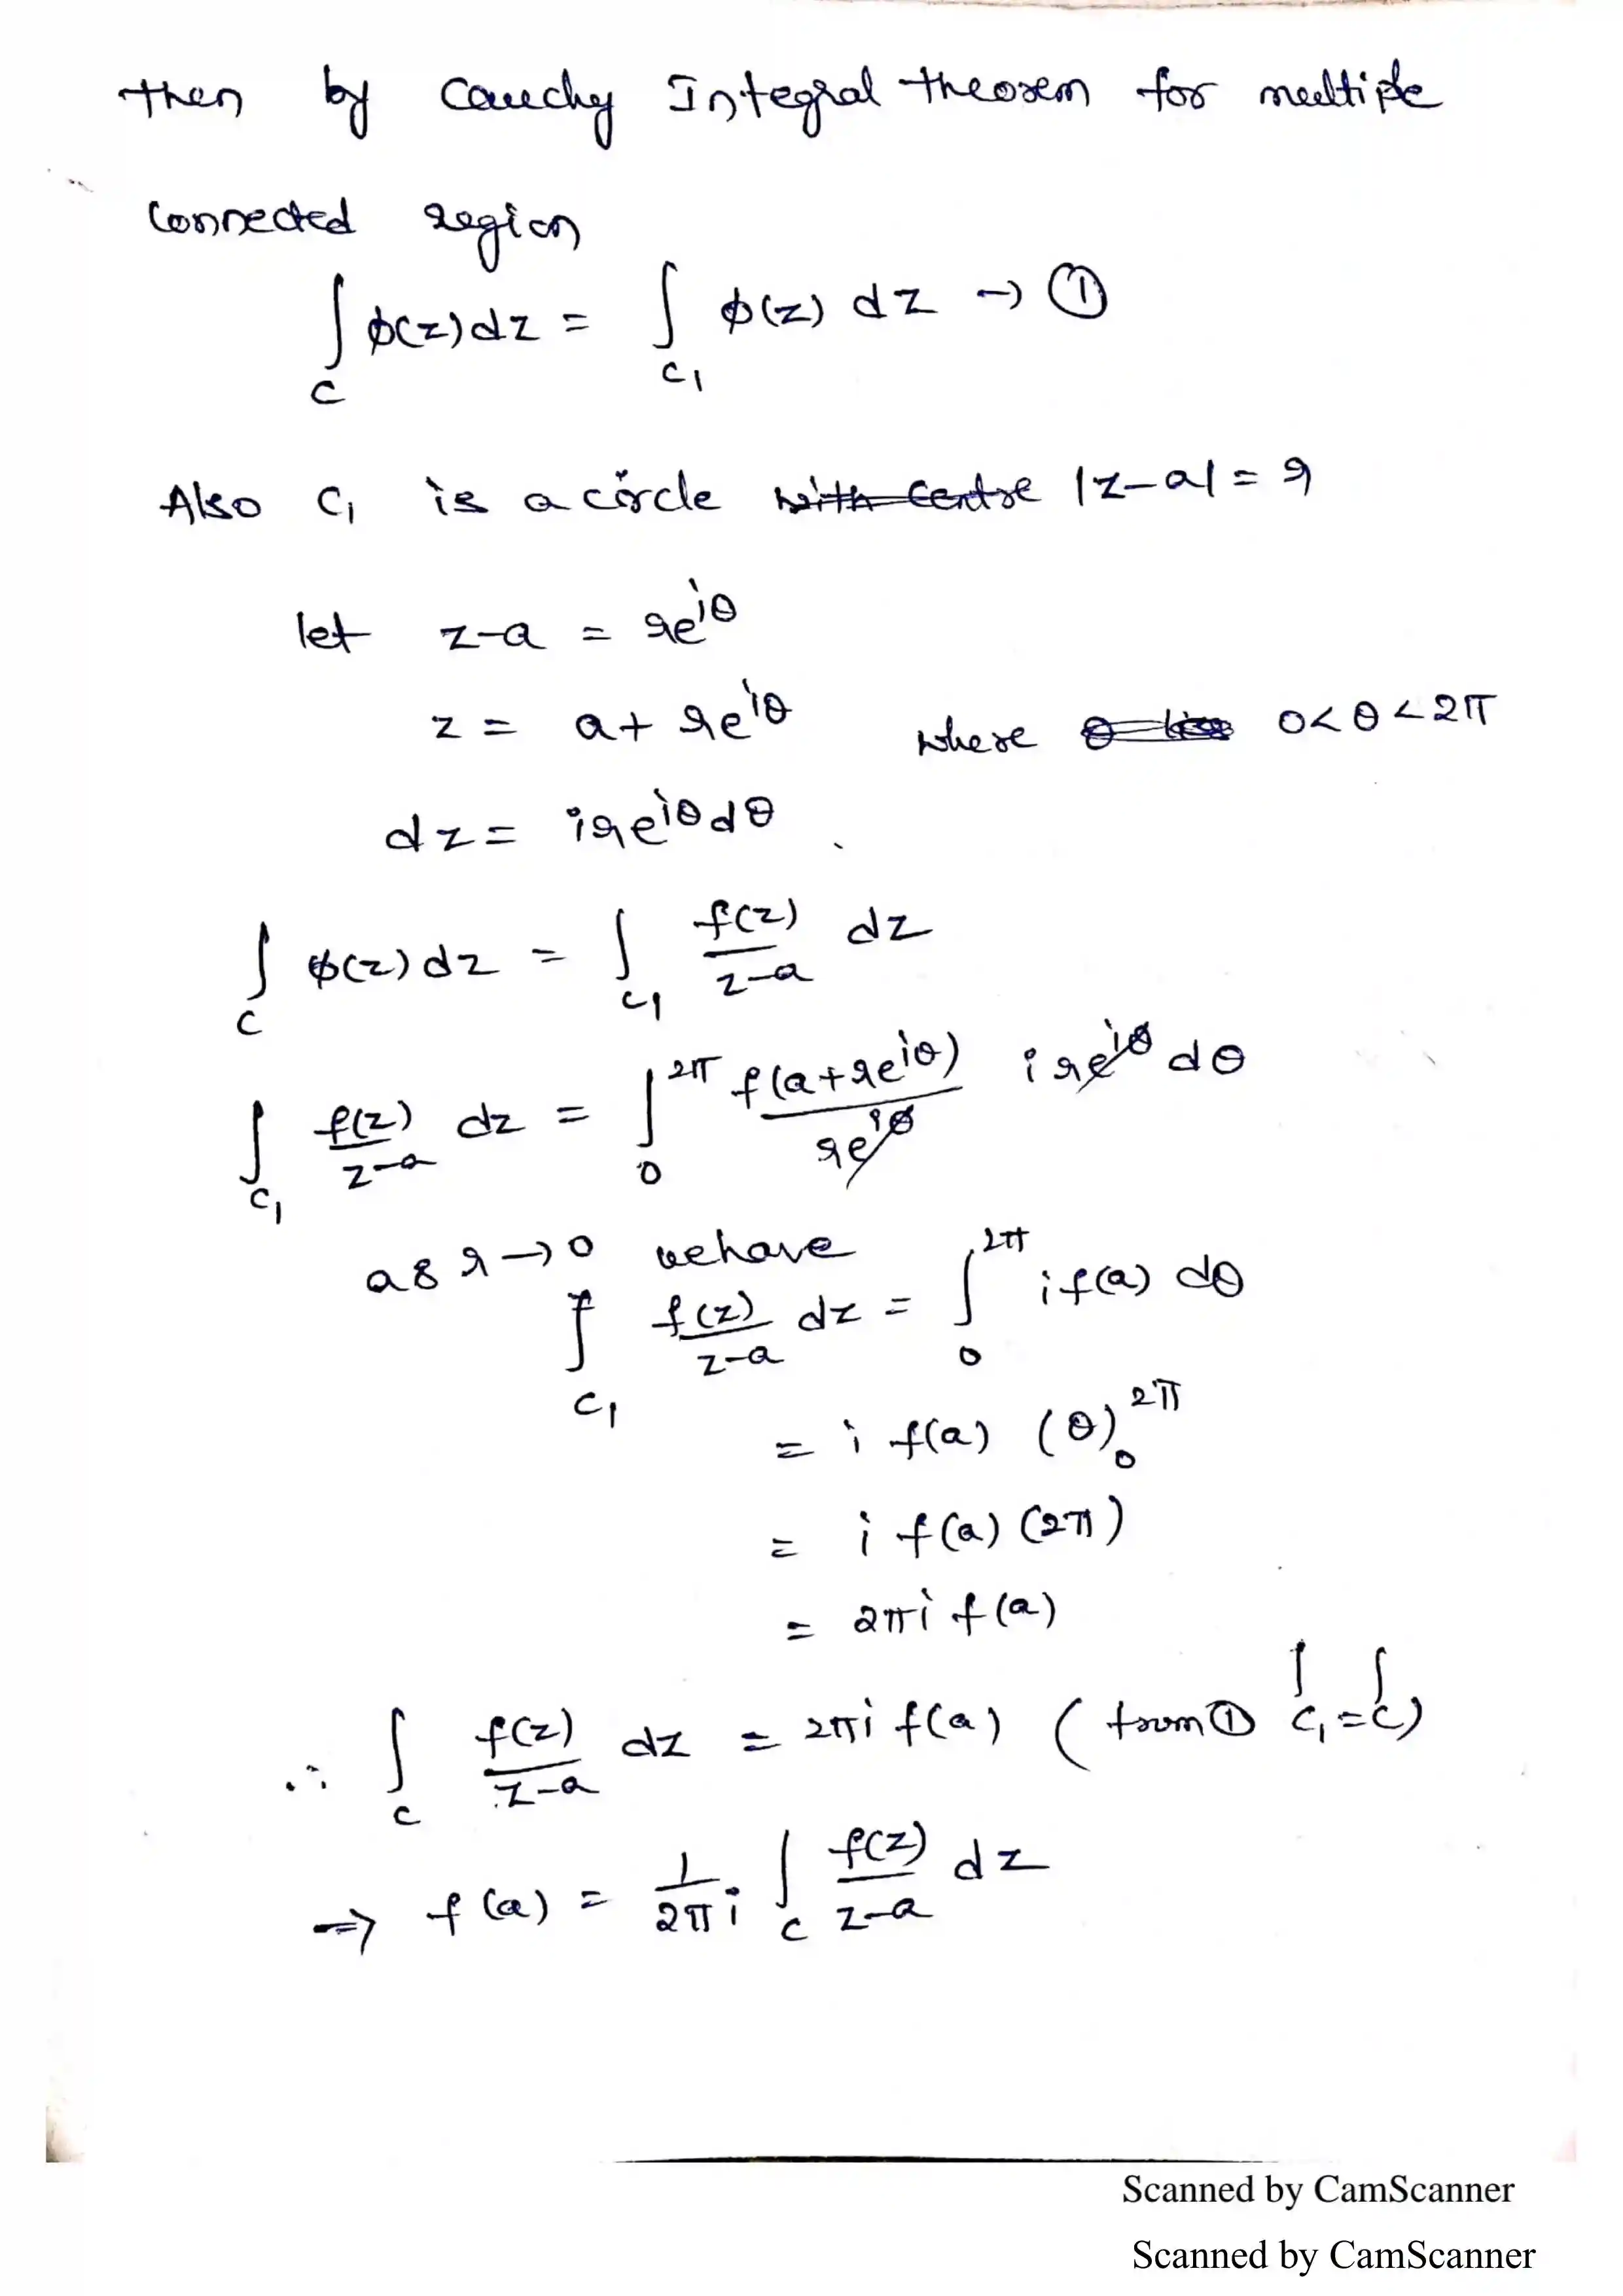 then by Cauchy Integral theorem for multiple
connected region
∫_C ϕ(z)dz = ∫_C₁ ϕ(z) dz → ①
Also C₁ is a circle ~~with Centre~~ |z-a| = r
let z-a = re^{iθ}
z = a + re^{iθ} where 0<θ<2π
dz = ire^{iθ}dθ.
∫_C ϕ(z)dz = ∫_C₁ f(z)/(z-a) dz
∫_C₁ f(z)/(z-a) dz = ∫_0^{2π} f(a+re^{iθ})/(re^{iθ}) ire^{iθ} dθ
as r→0 we have
∫_C₁ f(z)/(z-a) dz = ∫_0^{2π} if(a) dθ
= i f(a) (θ)_0^{2π}
= i f(a) (2π)
= 2πi f(a)
∴ ∫_C f(z)/(z-a) dz = 2πi f(a) (from ① ∫_C₁ = ∫_C)
⇒ f(a) = 1/(2πi) ∫_C f(z)/(z-a) dz
Scanned by CamScanner
Scanned by CamScanner